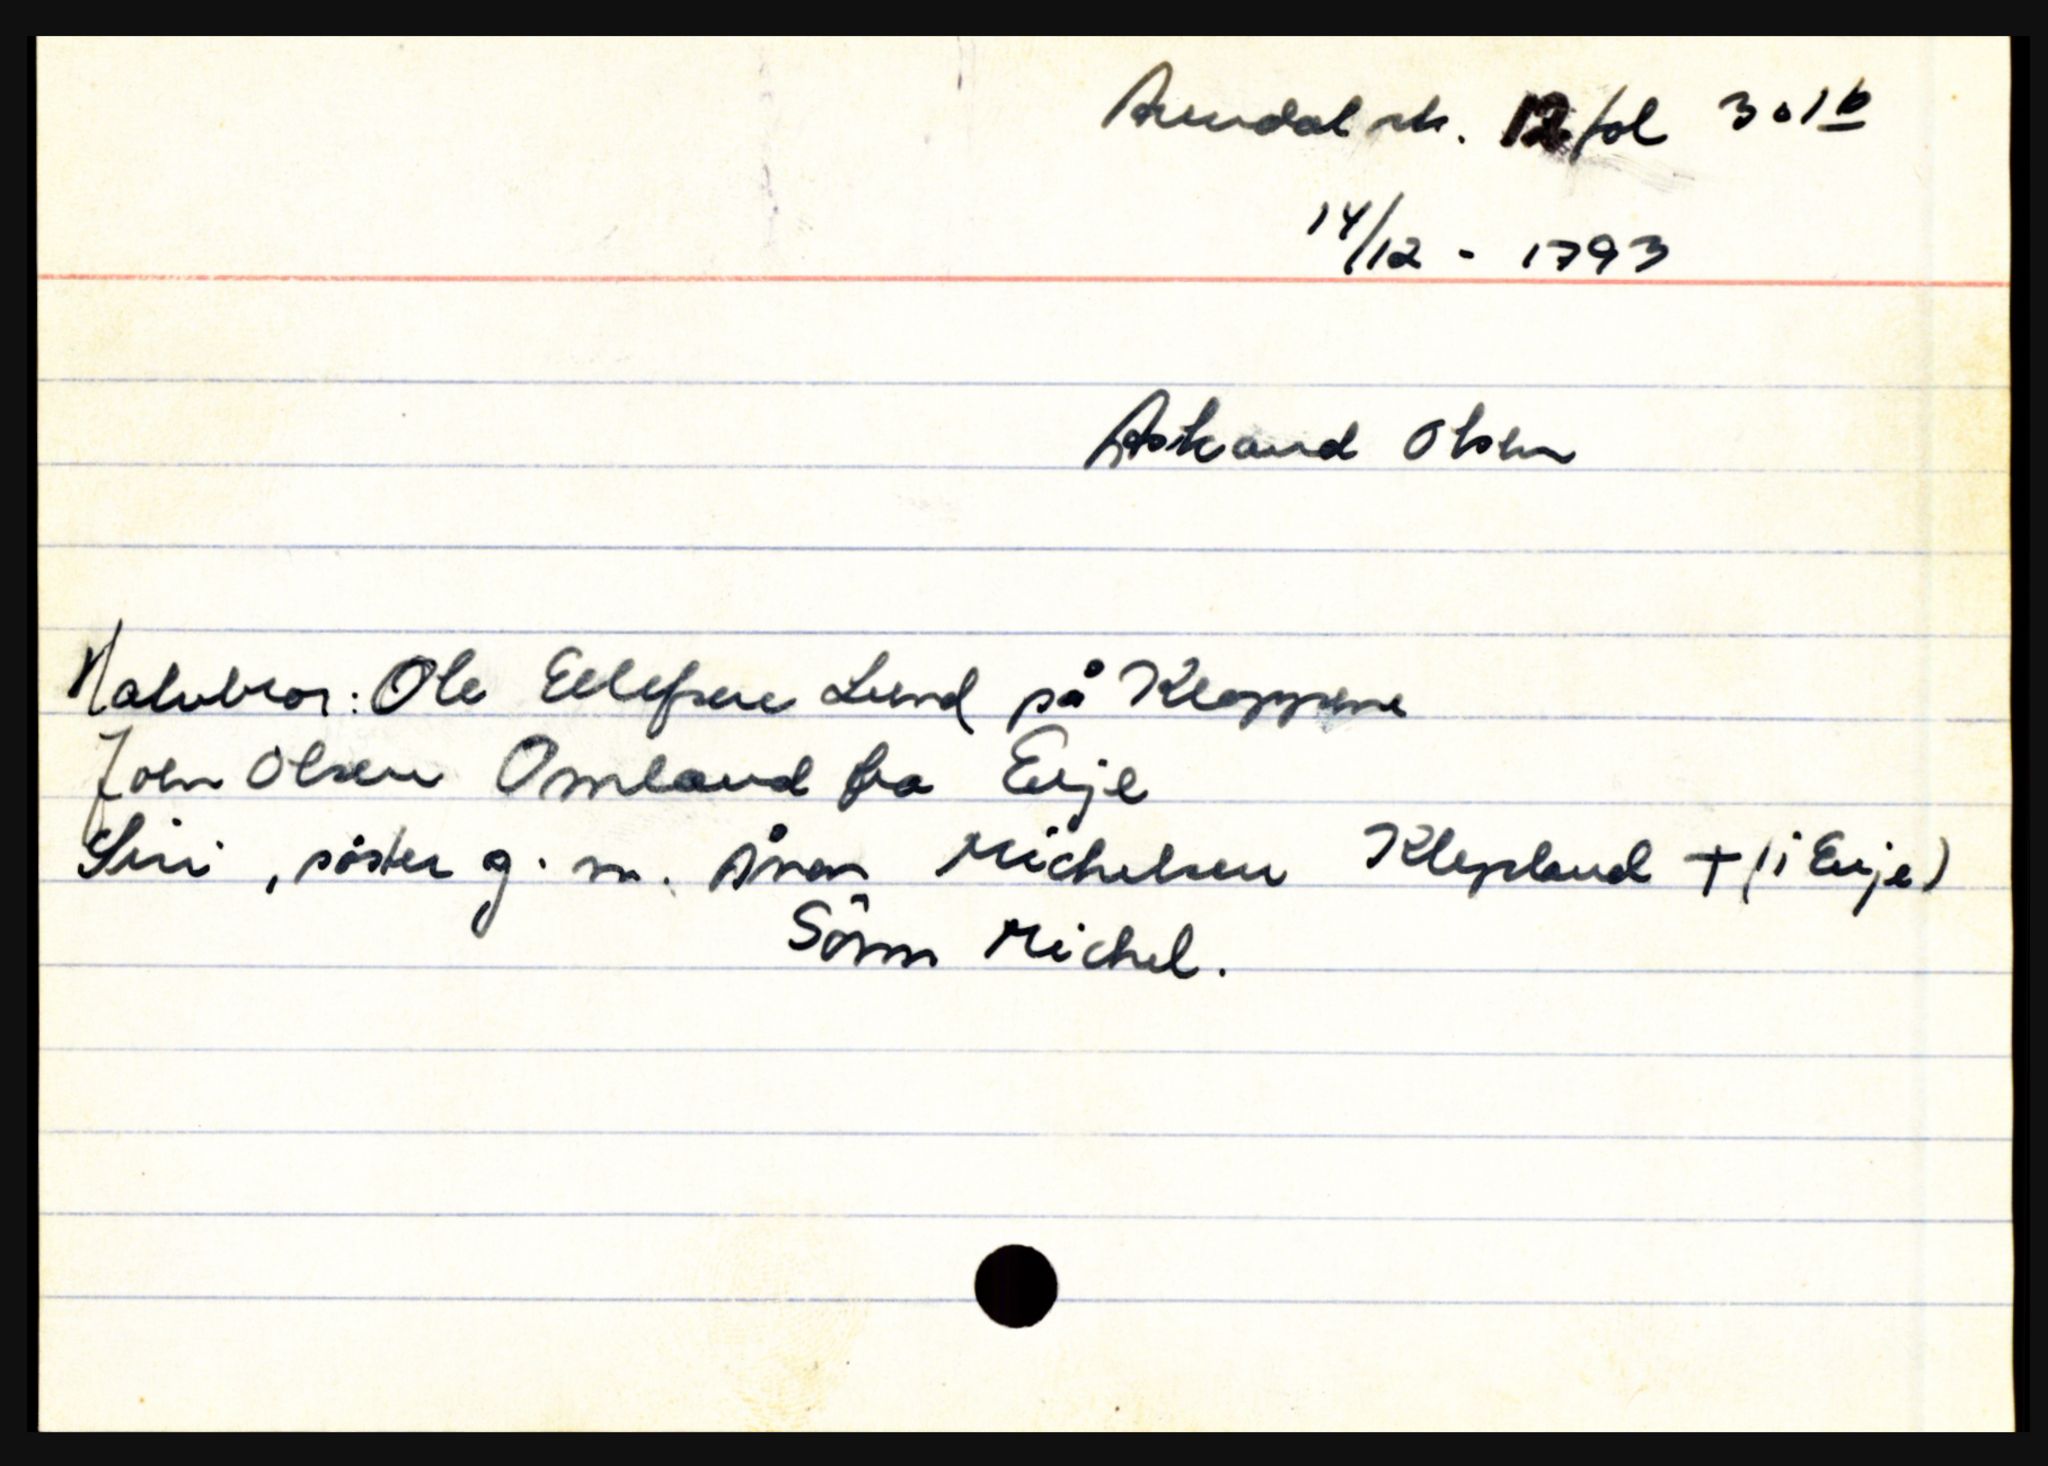 Arendal sk. 12 fol 301b
14/12 - 1793
Askaud Olsen
Halvbror: Ole Ellefsen Lund på Kloppene
John Olsen Omland fra Evje
Siri, søster g. m. Aanon Michelsen Klepland + (i Evje)
Sønn Michel.